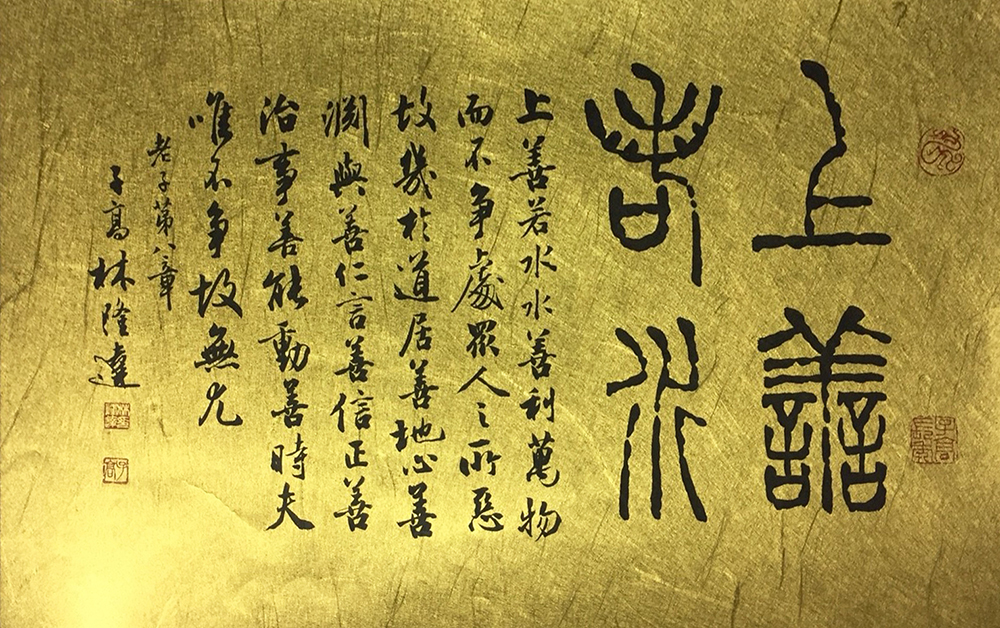 上善
若水
上善若水水善利萬物
而不爭處眾人之所惡
故幾於道居善地心善
淵與善仁言善信正善
治事善能動善時夫
唯不爭故無尤
老子第八章
子高林隆達